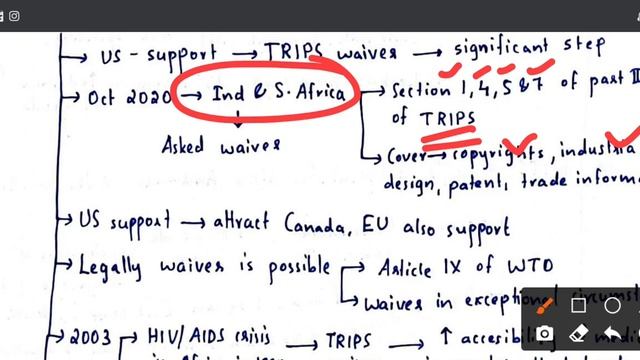 → US - support → TRIPS waiver → significant step
→ Oct 2020 → Ind & S. Africa → Section 1, 4, 5 & 7 of part II
of TRIPS
Asked waiver
→ Cover → copyrights, industria
design, patent, trade inform
→ US support → attract Canada, EU also support
→ Legally waiver is possible → Article IX of WTO
→ waiver in exceptional
→ 2003 → HIV/AIDS crisis → TRIPS → ↑ accesibility